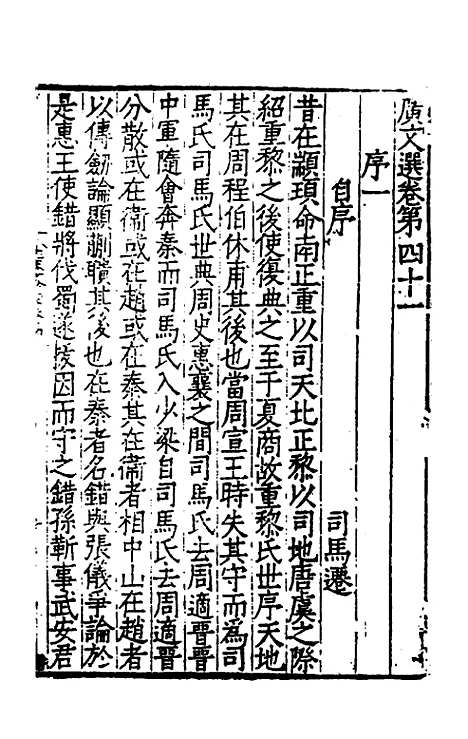 廣文選卷第四十一
序一
自序 司馬遷
昔在顓頊命南正重以司天北正黎以司地唐虞之際
紹重黎之後使復典之至于夏商故重黎氏世序天地
其在周程伯休甫其後也當周宣王時失其守而爲司
馬氏司馬氏世典周史惠襄之間司馬氏去周適晉晉
中軍隨會奔秦而司馬氏入少梁自司馬氏去周適晉
分散或在衞或在趙或在秦其在衞者相中山在趙者
以傳劒論顯蒯聵其後也在秦者名錯與張儀爭論於
是惠王使錯將伐蜀遂拔因而守之錯孫靳事武安君